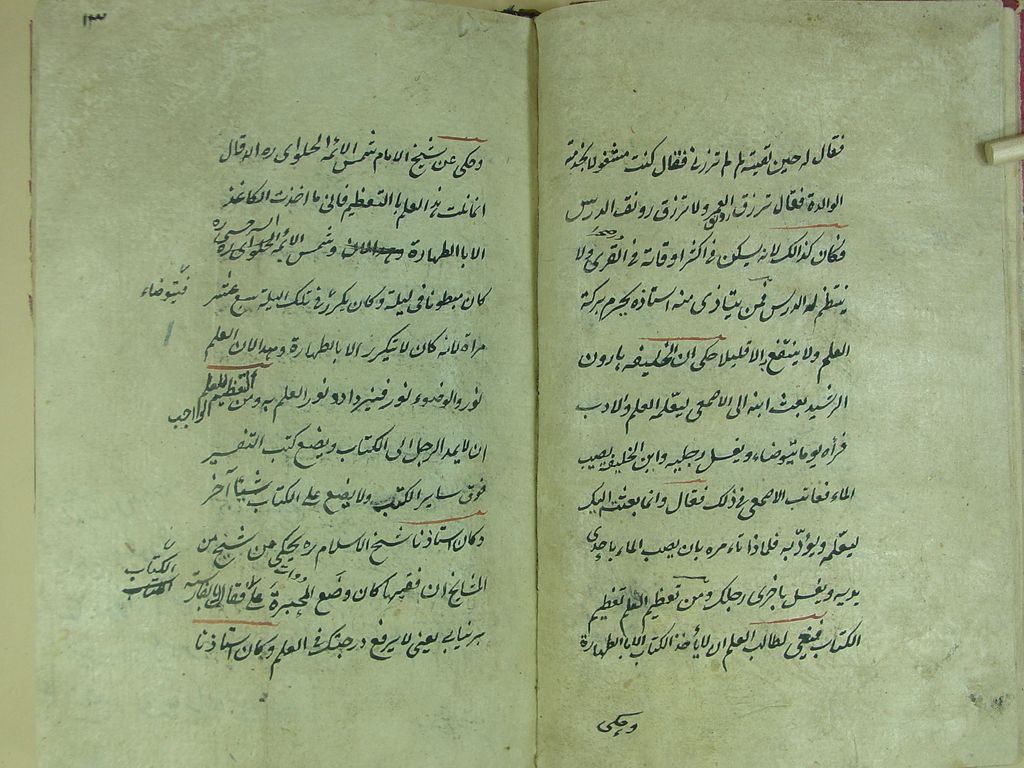 فقال له حين لقيته لم لم تزرني فقال كنت مشغولا بخدمة
الوالدة فقال ترزق العمر ولا ترزق رونق الدرس
فكان كذالك لانه يسكن في اكثر اوقاته في القرى ولا
ينتظم له الدرس فمن يتاذى منه استاذه يحرم بركة
العلم ولا ينتفع به الا قليلا حكى ان الخليفه هارون
الرشيد بعث ابنه الى الاصمعى ليعلمه العلم والادب
فرأه يوما يتوضاء ويغسل رجليه وابن الخليفه يصيب
الماء فعاتب الاصمعى في ذلك فقال وانما بعثت اليك
ليعلمه ويؤدبه فلماذا تاءمره بان يصب الماء باحدى
يديه ويغسل باخرى رجلك ومن تعظيم العلم تعظيم
الكتاب فينبغي لطالب العلم ان لا يأخذ الكتاب الا باالطهارة
وحكى
١٣
وحكى عن شيخ الامام شمس الائمه الحلواى ره انه قال
انما نلت هذ العلم باالتعظيم فانى ما اخذت الكاغذ
الا باالطهارة وشمس الائمه السرخسى ره
كان مبطونا في ليلة وكان يكرر في تلك اليلة سبع عشر
فيتوضاء
مراة لانه كان لا يكرر الا بالطهارة وهذا لان العلم
نور والوضوء نور فيزداد نور العلم به ومن التعظيم للعلم الواجب
ان لا يمد الرجل الى الكتاب ويضع كتب التفسير
فوق ساير الكتب ولا يضع على الكتاب شيئا آخر
وكان استاذنا شيخ الاسلام ره يحكى عن شيخ من
المشايخ ان فقيها كان وضع المحبرة على الكتاب فقال له بالفارسية
برنيابى يعنى لا يرفع درجتك في العلم وكان استاذنا